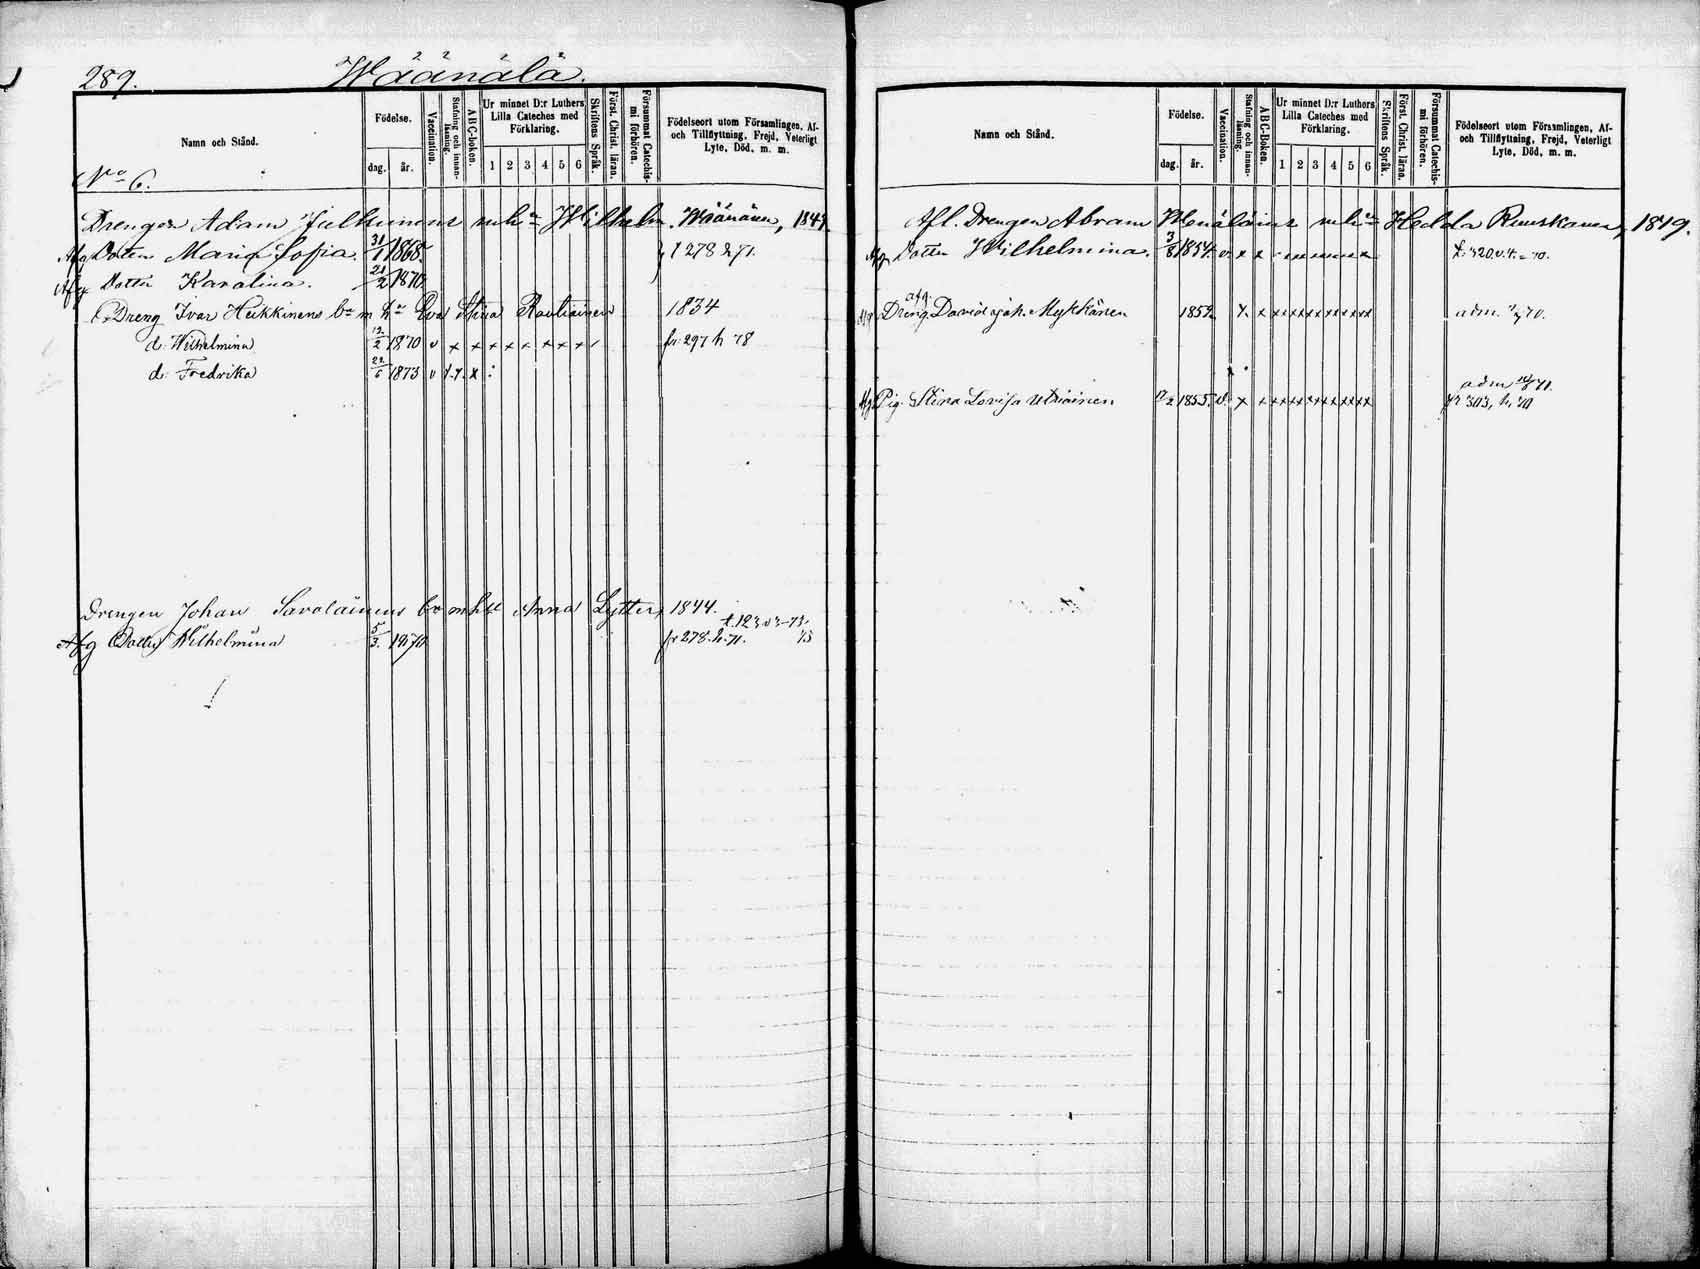 289. Wäänälä.
Namn och Stånd.
Födelse.
dag. år.
Vaccination.
Stafning och innanläsning.
ABC-boken.
Ur minnet D:r Luthers Lilla Cateches med Förklaring.
1 2 3 4 5 6
Skriftens Språk.
Först. Christ. läran.
Försummat Catechismi förhören.
Födelseort utom Församlingen, Af- och Tillflyttning, Frejd, Veterligt Lyte, Död, m. m.
No 6.
Drengen Adam Julkunens Wilhelm. Wäänänen,
Afg Dotter Maria Sofia. 31/1 1868. 278 71.
Afg Dotter Karolina. 21/2 1870
Dreng Ivar Heikkinens Eva Stina Rautiainen 1834
d. Wilhelmina 12/2 1870 v x x x x x x x x fr. 297 h 78
d. Fredrika 22/6 1873 v x
Drengen Johan Savolainens Anna Lytter, 1844.
Afg Dotter Wilhelmina 5/3. 1870 fr 278. h. 71.
Namn och Stånd.
Födelse.
dag. år.
Vaccination.
Stafning och innanläsning.
ABC-Boken.
Ur minnet D:r Luthers Lilla Cateches med Förklaring.
1 2 3 4 5 6
Skriftens Språk.
Först. Christ. läran.
Försummat Catechismi förhören.
Födelseort utom Församlingen, Af- och Tillflyttning, Frejd, Veterligt Lyte, Död, m. m.
Afl. Drengen Abram Hedda 1819.
Afg Dotter Wilhelmina. 3/8 1854. v. x x
Afg Dreng. David Joh. Mykkänen 1852 x x adm. 70.
adm 71.
Afg Pig. Stina Lovisa 1855. v. x 303, h, 70